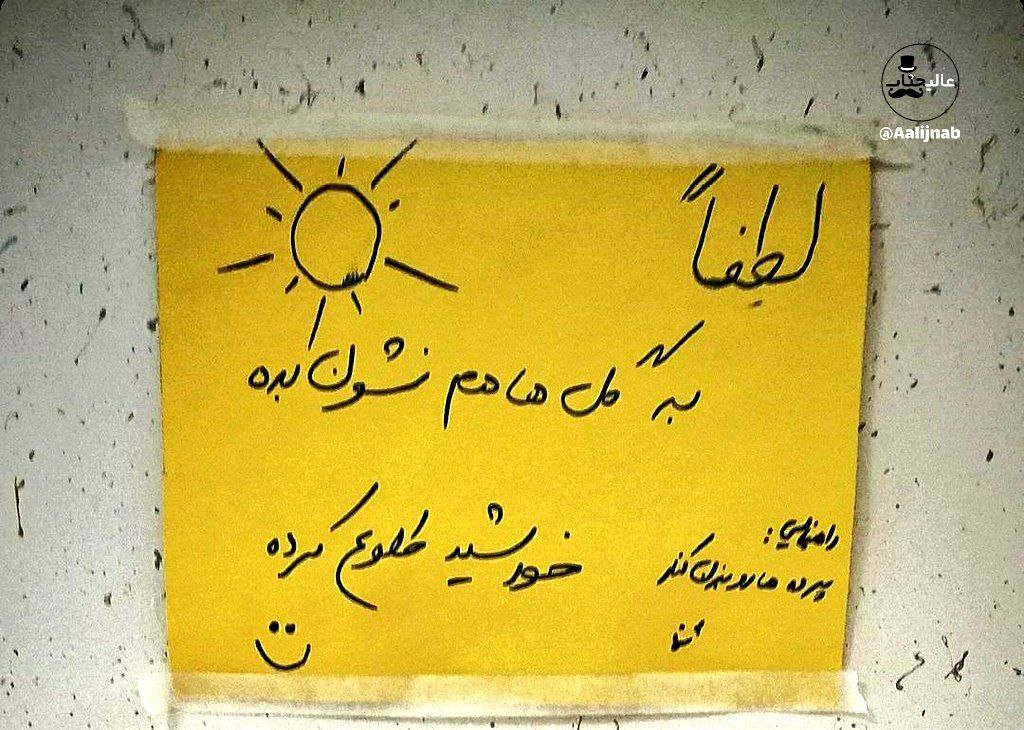 عالیجناب
@Aalijnab
لطفاً
به گل ها هم نشون بده
خورشید طلوع کرده
راهنمایی:
پرده ها رو بزن کنار